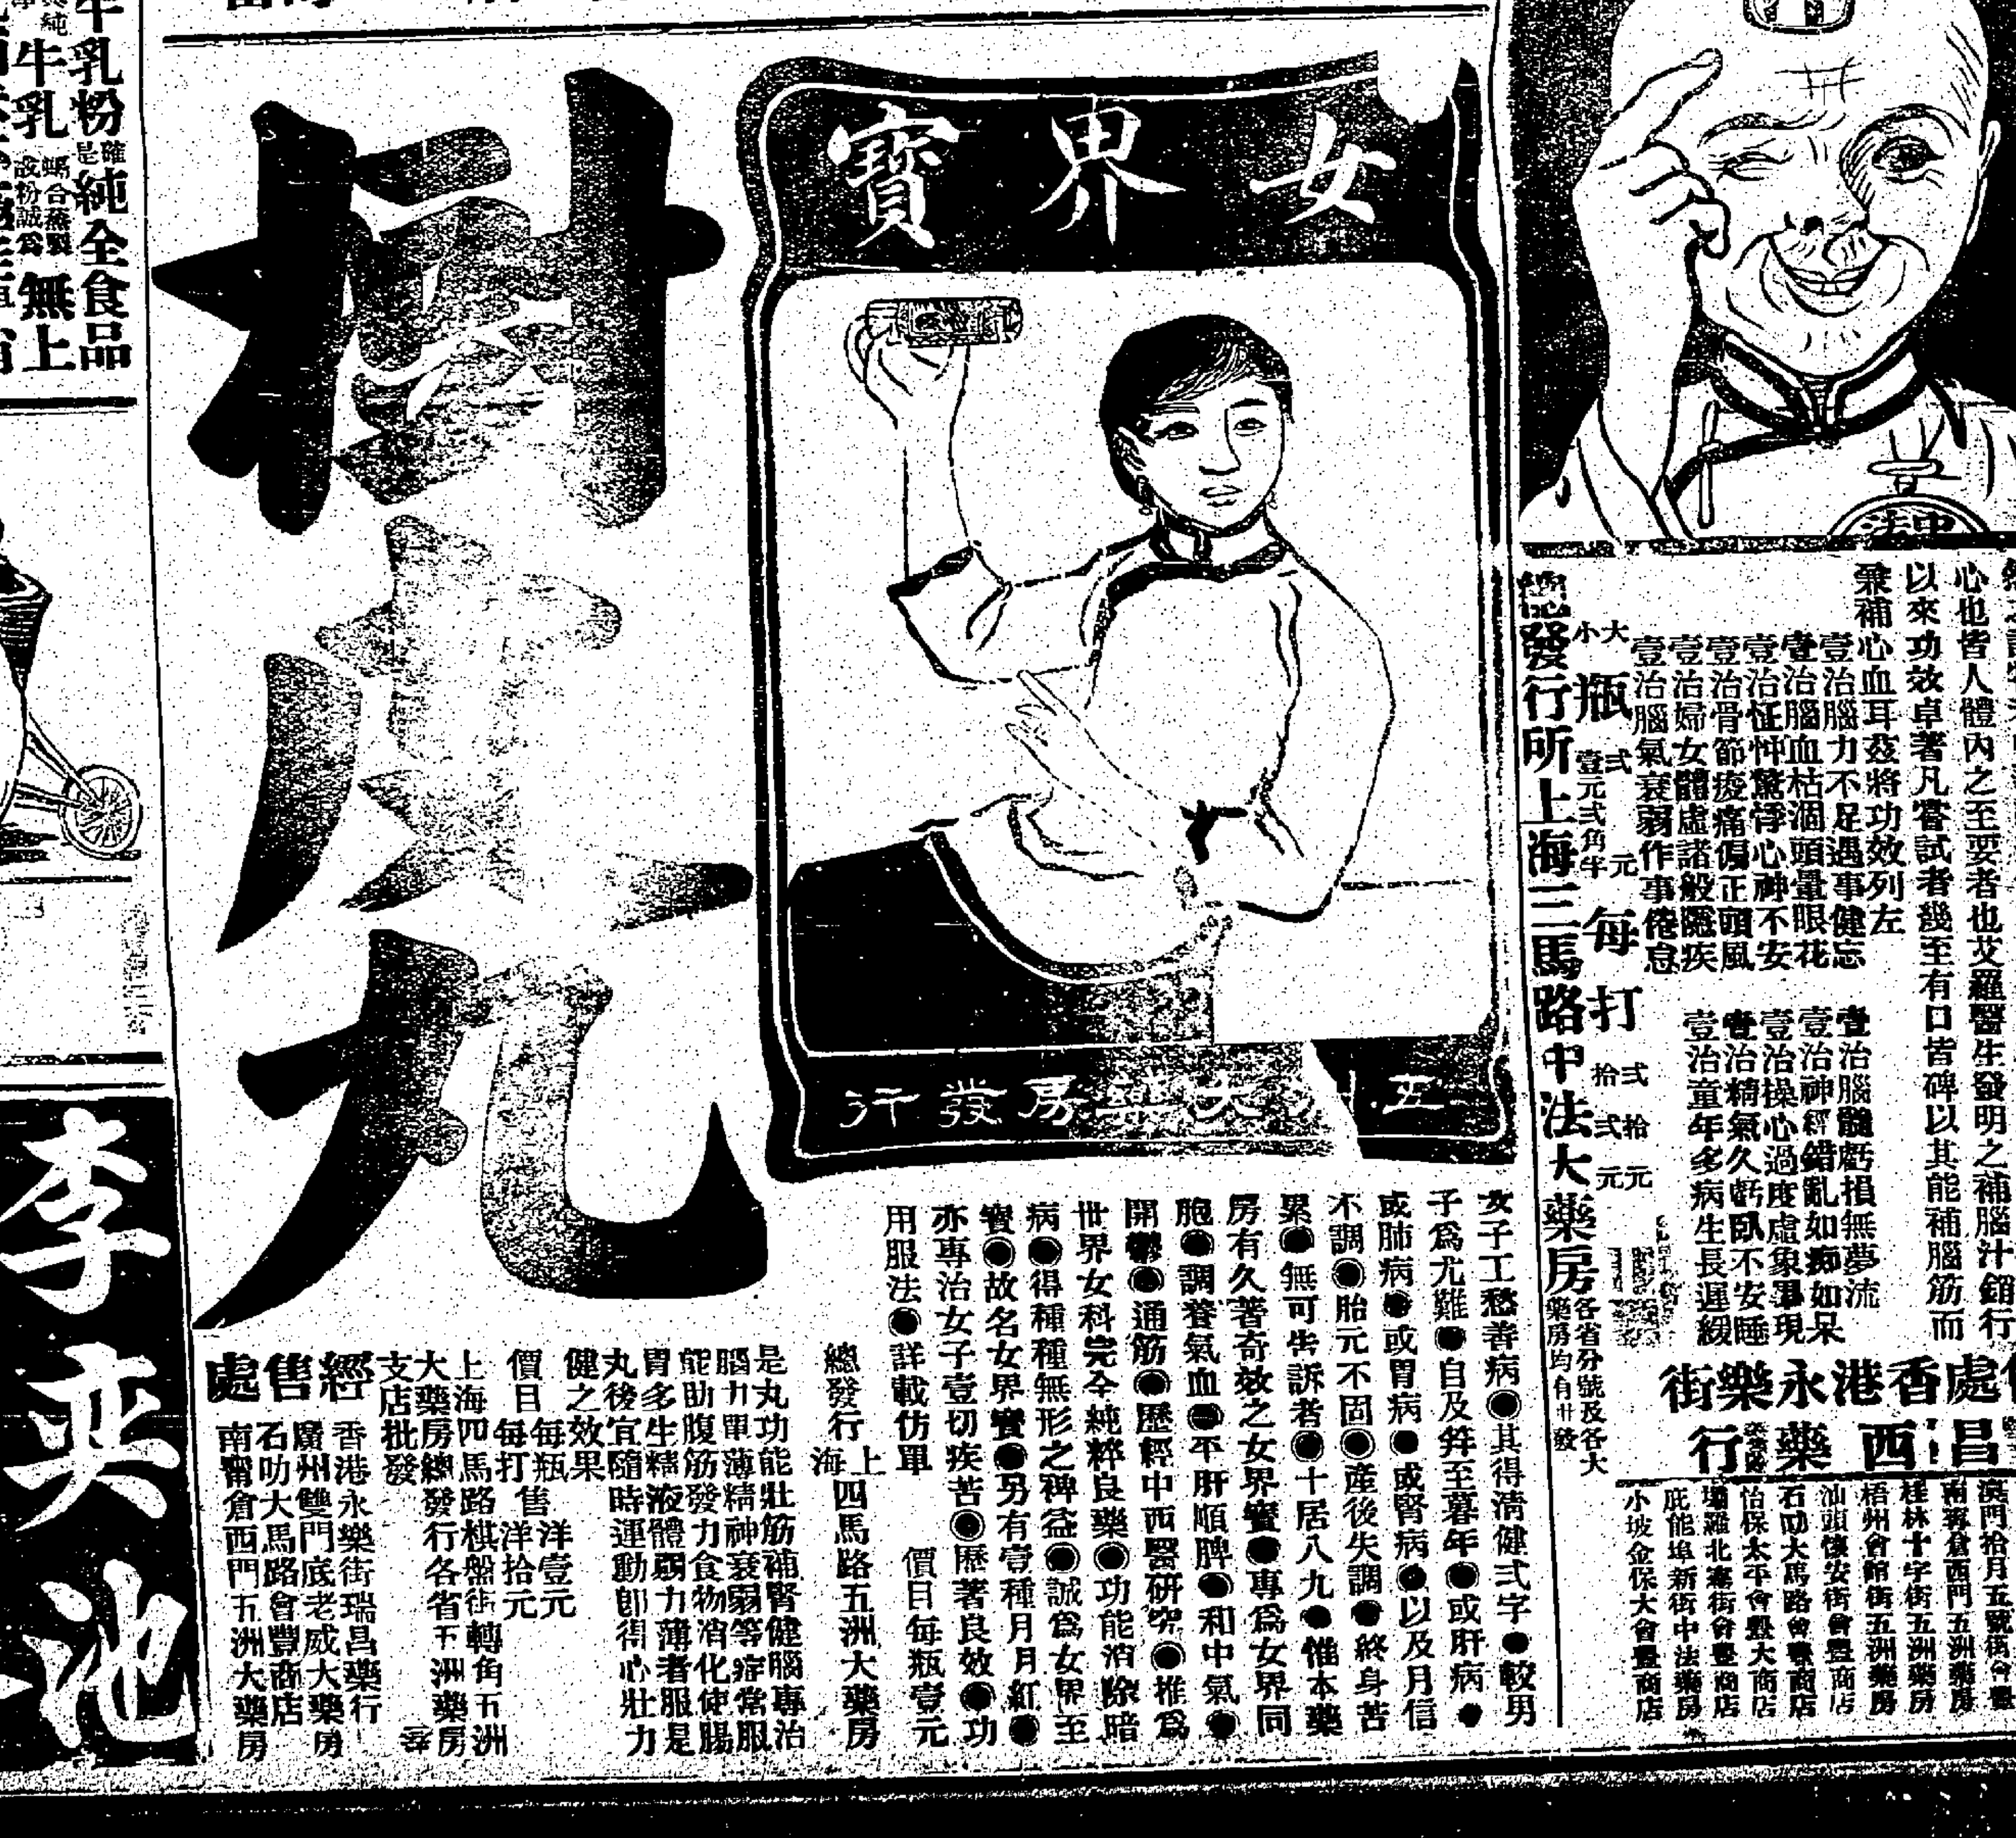 女界寶
五洲大藥房發行
女子工愁善病◉其得淸健弍字●較男
子爲尤難●自及笄至暮年●或肝病●
或肺病●或胃病●或腎病●以及月信
不調◉胎元不固◉產後失調●終身苦
累●無可告訴者●十居八九●惟本藥
房有久著奇效之女界寶●專爲女界同
胞●調養氣血●平肝順脾●和中氣●
開鬱●通筋●歷經中西醫研究◉推爲
世界女科完全純粹良藥◉功能消除暗
病●得種種無形之裨益●誠爲女界至
寶◉故名女界寶●另有壹種月月紅●
亦專治女子壹切疾苦◉歷著良效◉功
用服法●詳載仿單 價目每瓶壹元
總發行上海四馬路五洲大藥房
樹皮丸
是丸功能壯筋補腎健腦專治
腦力單薄精神衰弱等症常服
能助腹筋發力食物消化使腸
胃多生精液體弱力薄者服是
丸後宜隨時運動卽得心壯力
健之效果
價目 每瓶售洋壹元
每打洋拾元
上海四馬路棋盤街轉角五洲
大藥房總發行各省五洲藥房
支店批發
經售處
香港永樂街瑞昌藥行
廣州雙門底老威大藥房
石叻大馬路會豐商店
南甯倉西門五洲大藥房
中法
心也皆人體內之至要者也艾羅醫生發明之補腦汁銷行
以來功效卓著凡嘗試者幾至有口皆碑以其能補腦筋而
兼補心血耳茲將功效列左
壹治腦力不足遇事健忘
壹治腦血枯涸頭暈眼花
壹治怔忡驚悸心神不安
壹治骨節痠痛偏正頭風
壹治婦女體虛諸般隱疾
壹治腦氣衰弱作事倦怠
壹治腦髓虧損無夢流
壹治神經錯亂如痴如呆
壹治操心過度虛象畢現
壹治精氣久虧臥不安睡
壹治童年多病生長遲緩
大瓶弍元 每打弍拾元
小瓶壹元弍角半 每打拾弍元
總發行所上海三馬路中法大藥房
各省分號及各大藥房均有廿發
處香港永樂街
昌西藥行
澳門拾月五號街
南寗倉西門五洲藥房
桂林十字街五洲藥房
梧州會館街五洲藥房
汕頭懷安街會豐商店
石叻大馬路會豐商店
怡保太平會豐大商店
壩羅北寨街會豐商店
庇能埠新街中法藥房
小坡金保大會豐商店
牛乳粉確是純全食品
牛乳 無上
李奕池